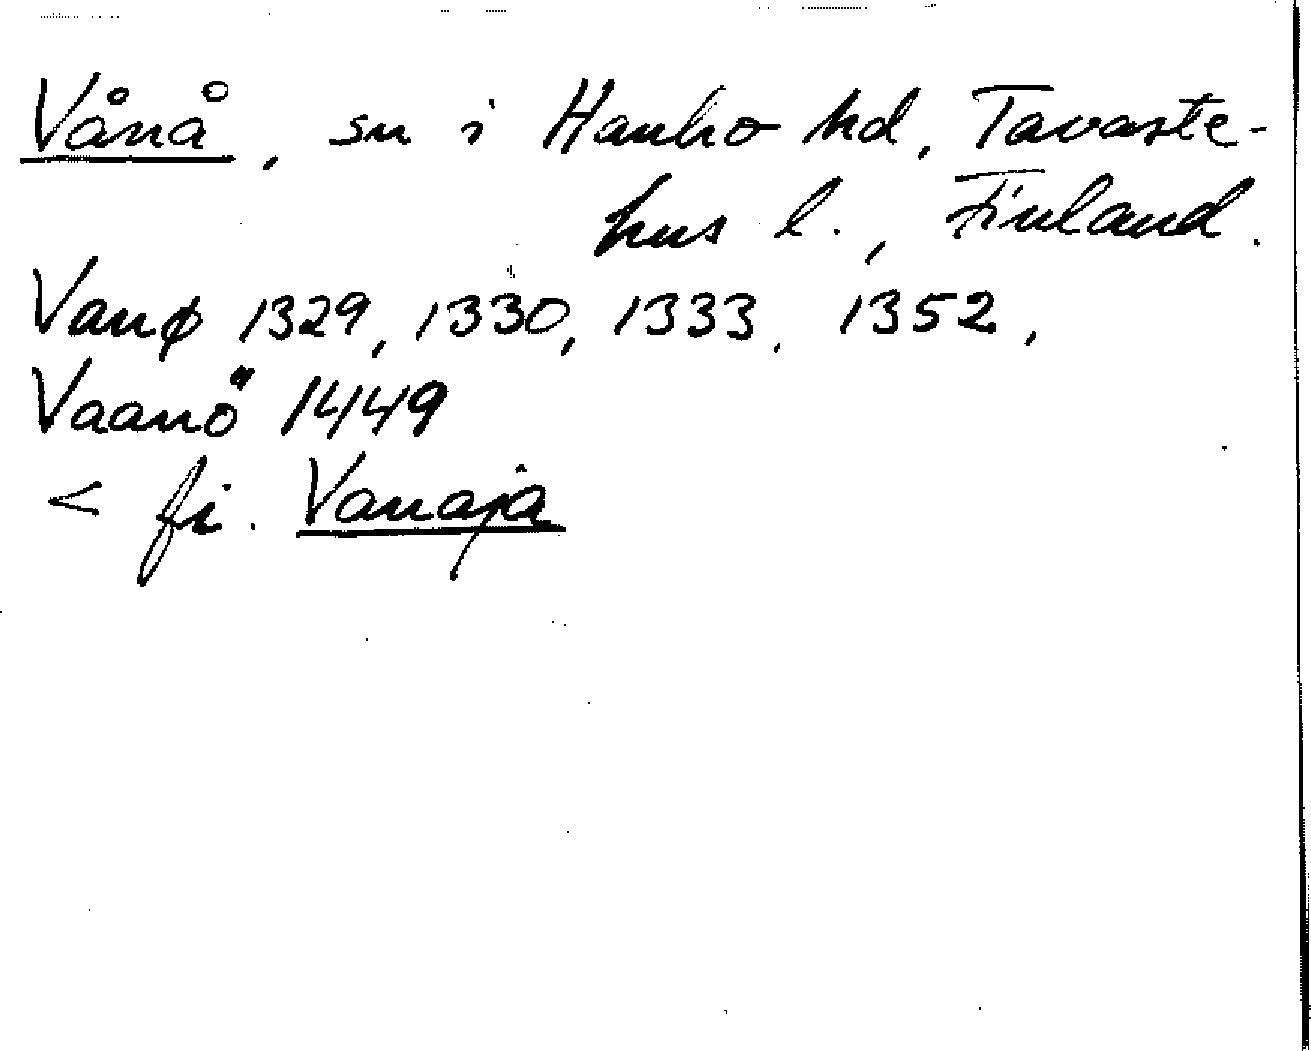 Vånå, sn i Hauho hd, Tavaste-
hus l., Finland.
Vanø 1329, 1330, 1333, 1352,
Vaanö 1449
< fi. Vanaja